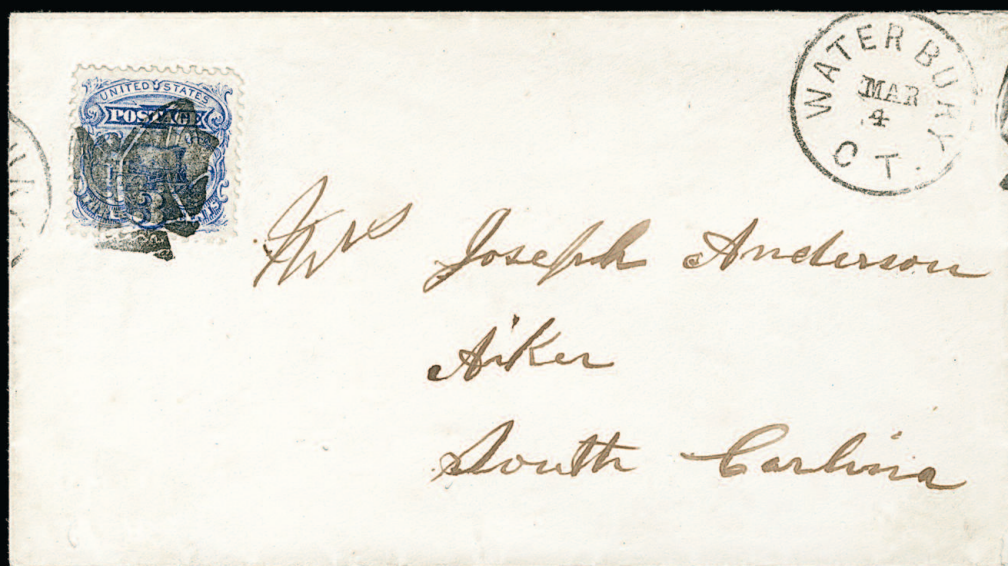 UNITED STATES
POSTAGE
3
WATERBURY
MAR
4
CT.
Mr Joseph Anderson
Aiker
South Carlina